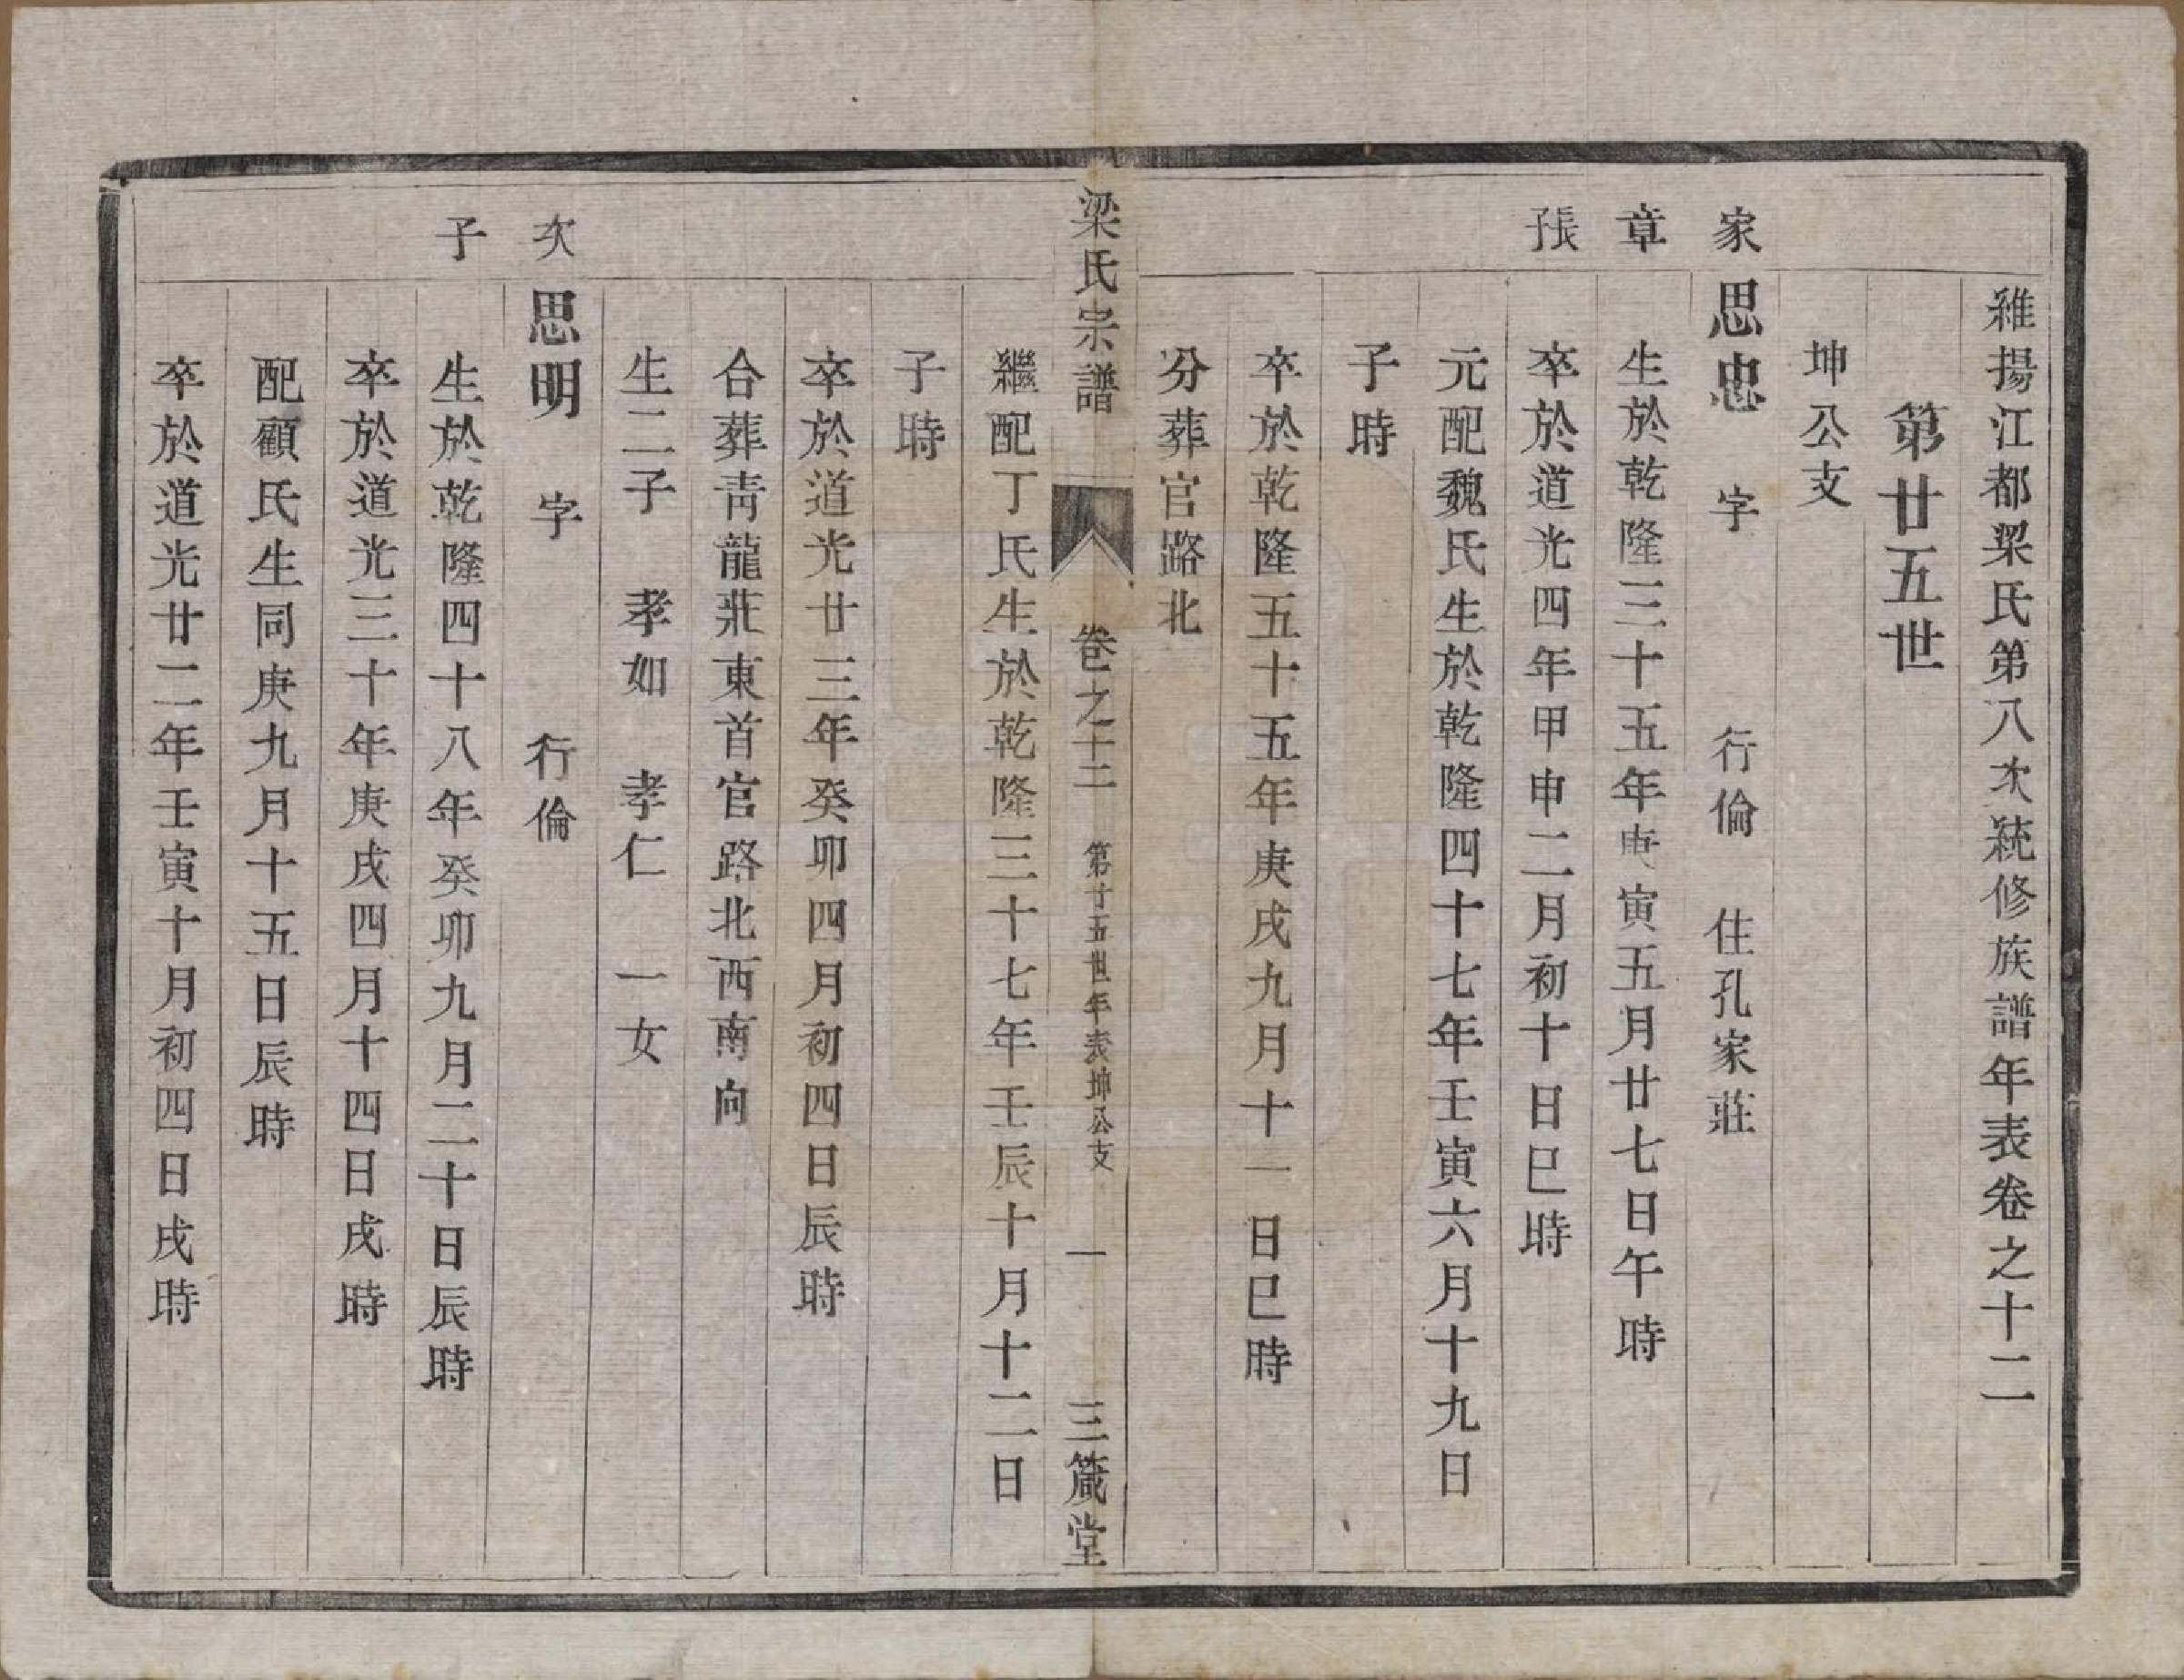 維揚江都梁氏第八次統修族譜年表卷之十二
第廿五世
坤公支
家章長子
思忠　字　　行倫　住孔家莊
生於乾隆三十五年庚寅五月廿七日午時
卒於道光四年甲申二月初十日巳時
元配魏氏生於乾隆四十七年壬寅六月十九日
子時
卒於乾隆五十五年庚戌九月十一日巳時
分葬官路北
梁氏宗譜　卷之十二　第廿五世年表坤公支　一　三箴堂
繼配丁氏生於乾隆三十七年壬辰十月十二日
子時
卒於道光廿三年癸卯四月初四日辰時
合葬靑龍莊東首官路北西南向
生二子　孝如　孝仁　一女
次子
思明　字　　行倫
生於乾隆四十八年癸卯九月二十日辰時
卒於道光三十年庚戌四月十四日戌時
配顧氏生同庚九月十五日辰時
卒於道光廿二年壬寅十月初四日戌時